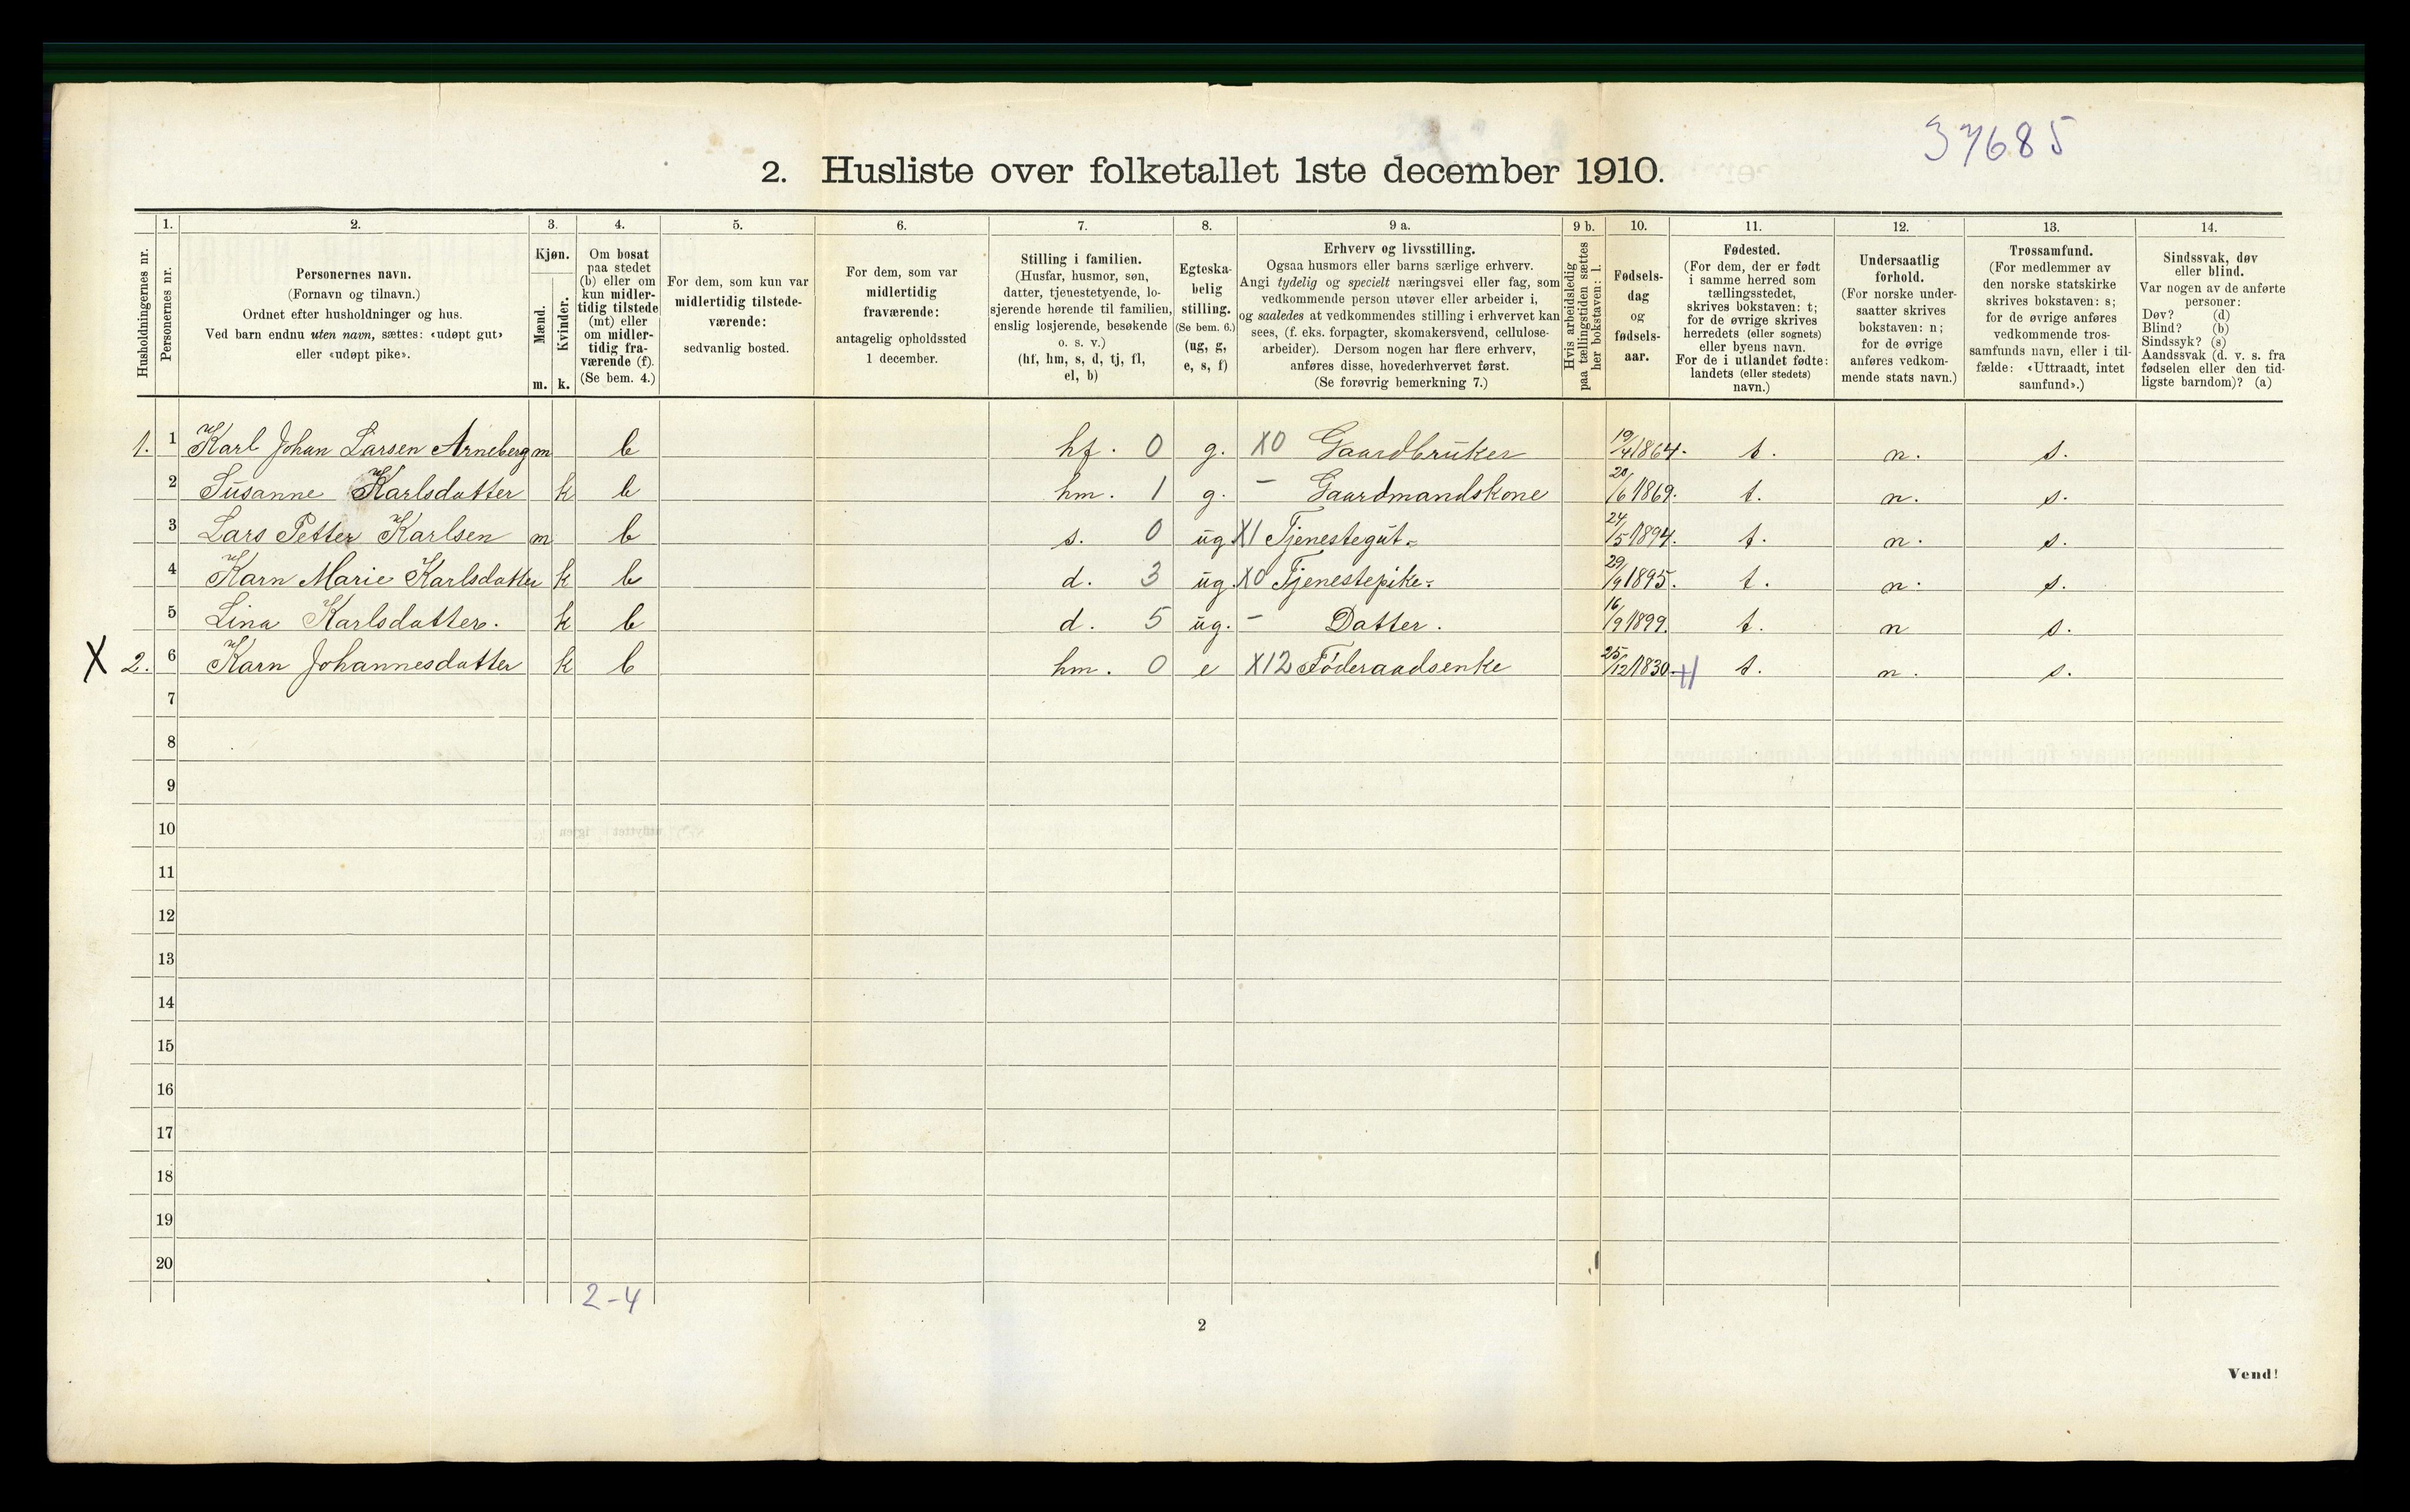 37685
2. Husliste over folketallet 1ste december 1910.
Husholdningernes nr.
1.
Personernes nr.
2.
Personernes navn.
(Fornavn og tilnavn.)
Ordnet efter husholdninger og hus.
Ved barn endnu uten navn, sættes: «udøpt gut»
eller «udøpt pike».
3.
Kjøn.
Mænd.
Kvinder.
m. k.
4.
Om bosat
paa stedet
(b) eller om
kun midler-
tidig tilstede
(mt) eller
om midler-
tidig fra-
værende (f).
(Se bem. 4.)
5.
For dem, som kun var
midlertidig tilstede-
værende:
sedvanlig bosted.
6.
For dem, som var
midlertidig
fraværende:
antagelig opholdssted
1 december.
7.
Stilling i familien.
(Husfar, husmor, søn,
datter, tjenestetyende, lo-
sjerende hørende til familien,
enslig losjerende, besøkende
o. s. v.)
(hf, hm, s, d, tj, fl,
el, b)
8.
Egteska-
belig
stilling.
(Se bem. 6.)
(ug, g,
e, s, f)
9 a.
Erhverv og livsstilling.
Ogsaa husmors eller barns særlige erhverv.
Angi tydelig og specielt næringsvei eller fag, som
vedkommende person utøver eller arbeider i,
og saaledes at vedkommendes stilling i erhvervet kan
sees, (f. eks. forpagter, skomakersvend, cellulose-
arbeider). Dersom nogen har flere erhverv,
anføres disse, hovederhvervet først.
(Se forøvrig bemerkning 7.)
9 b.
Hvis arbeidsledig
paa tællingstiden sættes
her bokstaven: l.
10.
Fødsels-
dag
og
fødsels-
aar.
11.
Fødested.
(For dem, der er født
i samme herred som
tællingsstedet,
skrives bokstaven: t;
for de øvrige skrives
herredets (eller sognets)
eller byens navn.
For de i utlandet fødte:
landets (eller stedets)
navn.)
12.
Undersaatlig
forhold.
(For norske under-
saatter skrives
bokstaven: n;
for de øvrige
anføres vedkom-
mende stats navn.)
13.
Trossamfund.
(For medlemmer av
den norske statskirke
skrives bokstaven: s;
for de øvrige anføres
vedkommende tros-
samfunds navn, eller i til-
fælde: «Uttraadt, intet
samfund».)
14.
Sindssvak, døv
eller blind.
Var nogen av de anførte
personer:
Døv? (d)
Blind? (b)
Sindssyk? (s)
Aandssvak (d. v. s. fra
fødselen eller den tid-
ligste barndom)? (a)
1. 1 Karl Johan Larsen Arneberg m b hf. 0 g. X0 Gaardbruker 19/4 1864. t. n. s.
2 Susanne Karlsdatter k b hm. 1 g. – Gaardmandskone 20/6 1869. t. n. s.
3 Lars Petter Karlsen m b s. 0 ug X1 Tjenestegut 24/5 1894. t. n. s.
4 Karn Marie Karlsdatter k b d. 3 ug. X0 Tjenestepike 29/9 1895. t. n. s.
5 Lina Karlsdatter. k b d. 5 ug. – Datter. 16/9 1899. t. n s.
X 2. 6 Karn Johannesdatter k b hm. 0 e X12 Føderaadsenke 25/12 1830 t. n. s.
7
8
9
10
11
12
13
14
15
16
17
18
19
20
2-4
2
Vend!